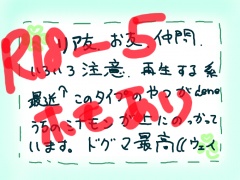 R18-5
リ友、お友、仲間、
いろいろ注意、再生する系
ホモあり
最近↑このタイプのやつがdene
うちのミナモンが上にのっかって
います。ドグマ最高((ウェイ